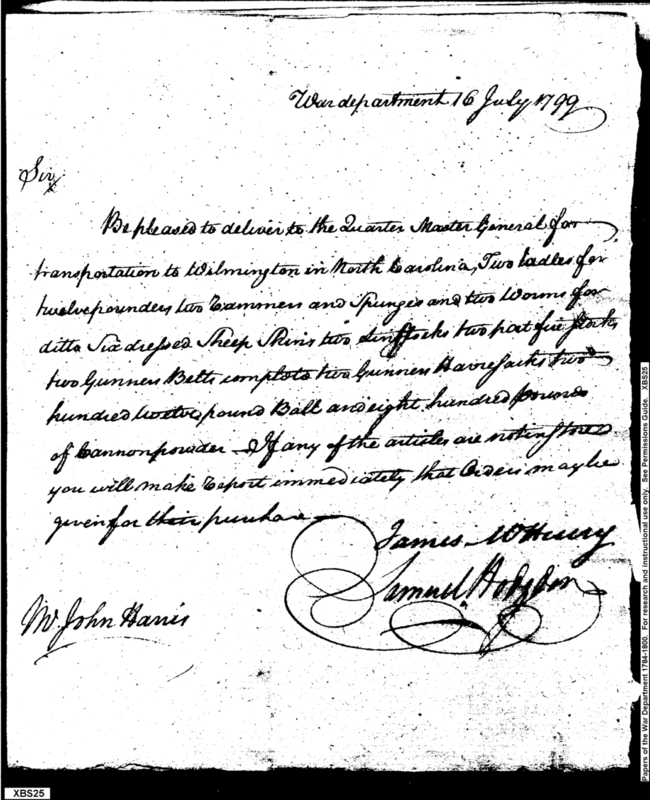 War department 16 July 1799
Sir,
Be pleased to deliver to the Quarter Master General for
transportation to Wilmington in North Carolina, Two ladles for
twelve pounders two Rammers and Spunges and two Worms for
ditto Six dressed Sheep Skins two Linstocks two port fire Stocks
two Gunners Belts complete two Gunners Haversacks two
hundred twelve pound Ball and eight hundred pounds
of Cannon powder — If any of the articles are not in Store
you will make Report immediately that Orders may be
given for their purchase
James McHenry
Samuel Hodgdon
Mr. John Harris
XBS25
Papers of the War Department 1784-1800. For research and instructional use only. See Permissions Guide. XBS25